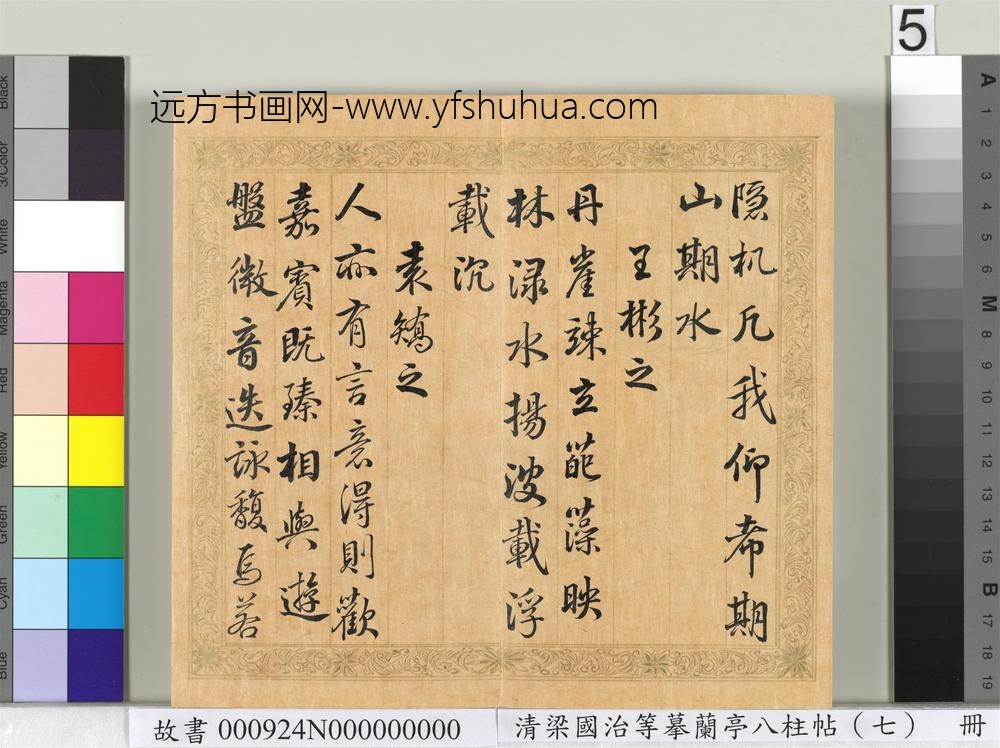 远方书画网-www.yfshuhua.com
5
隐机凡我仰希期
山期水
王彬之
丹崖竦立葩藻映
林渌水揚波載浮
載沉
袁矯之
人亦有言意得則歡
嘉賓既臻相與遊
盤微音迭詠馥焉若
故書 000924N000000000
清梁國治等摹蘭亭八柱帖（七） 冊
Black
3/Color
White
Magenta
Red
Yellow
Green
Cyan
Blue
A
1
2
3
4
5
6
M
8
9
10
11
12
13
14
15
B
17
18
19